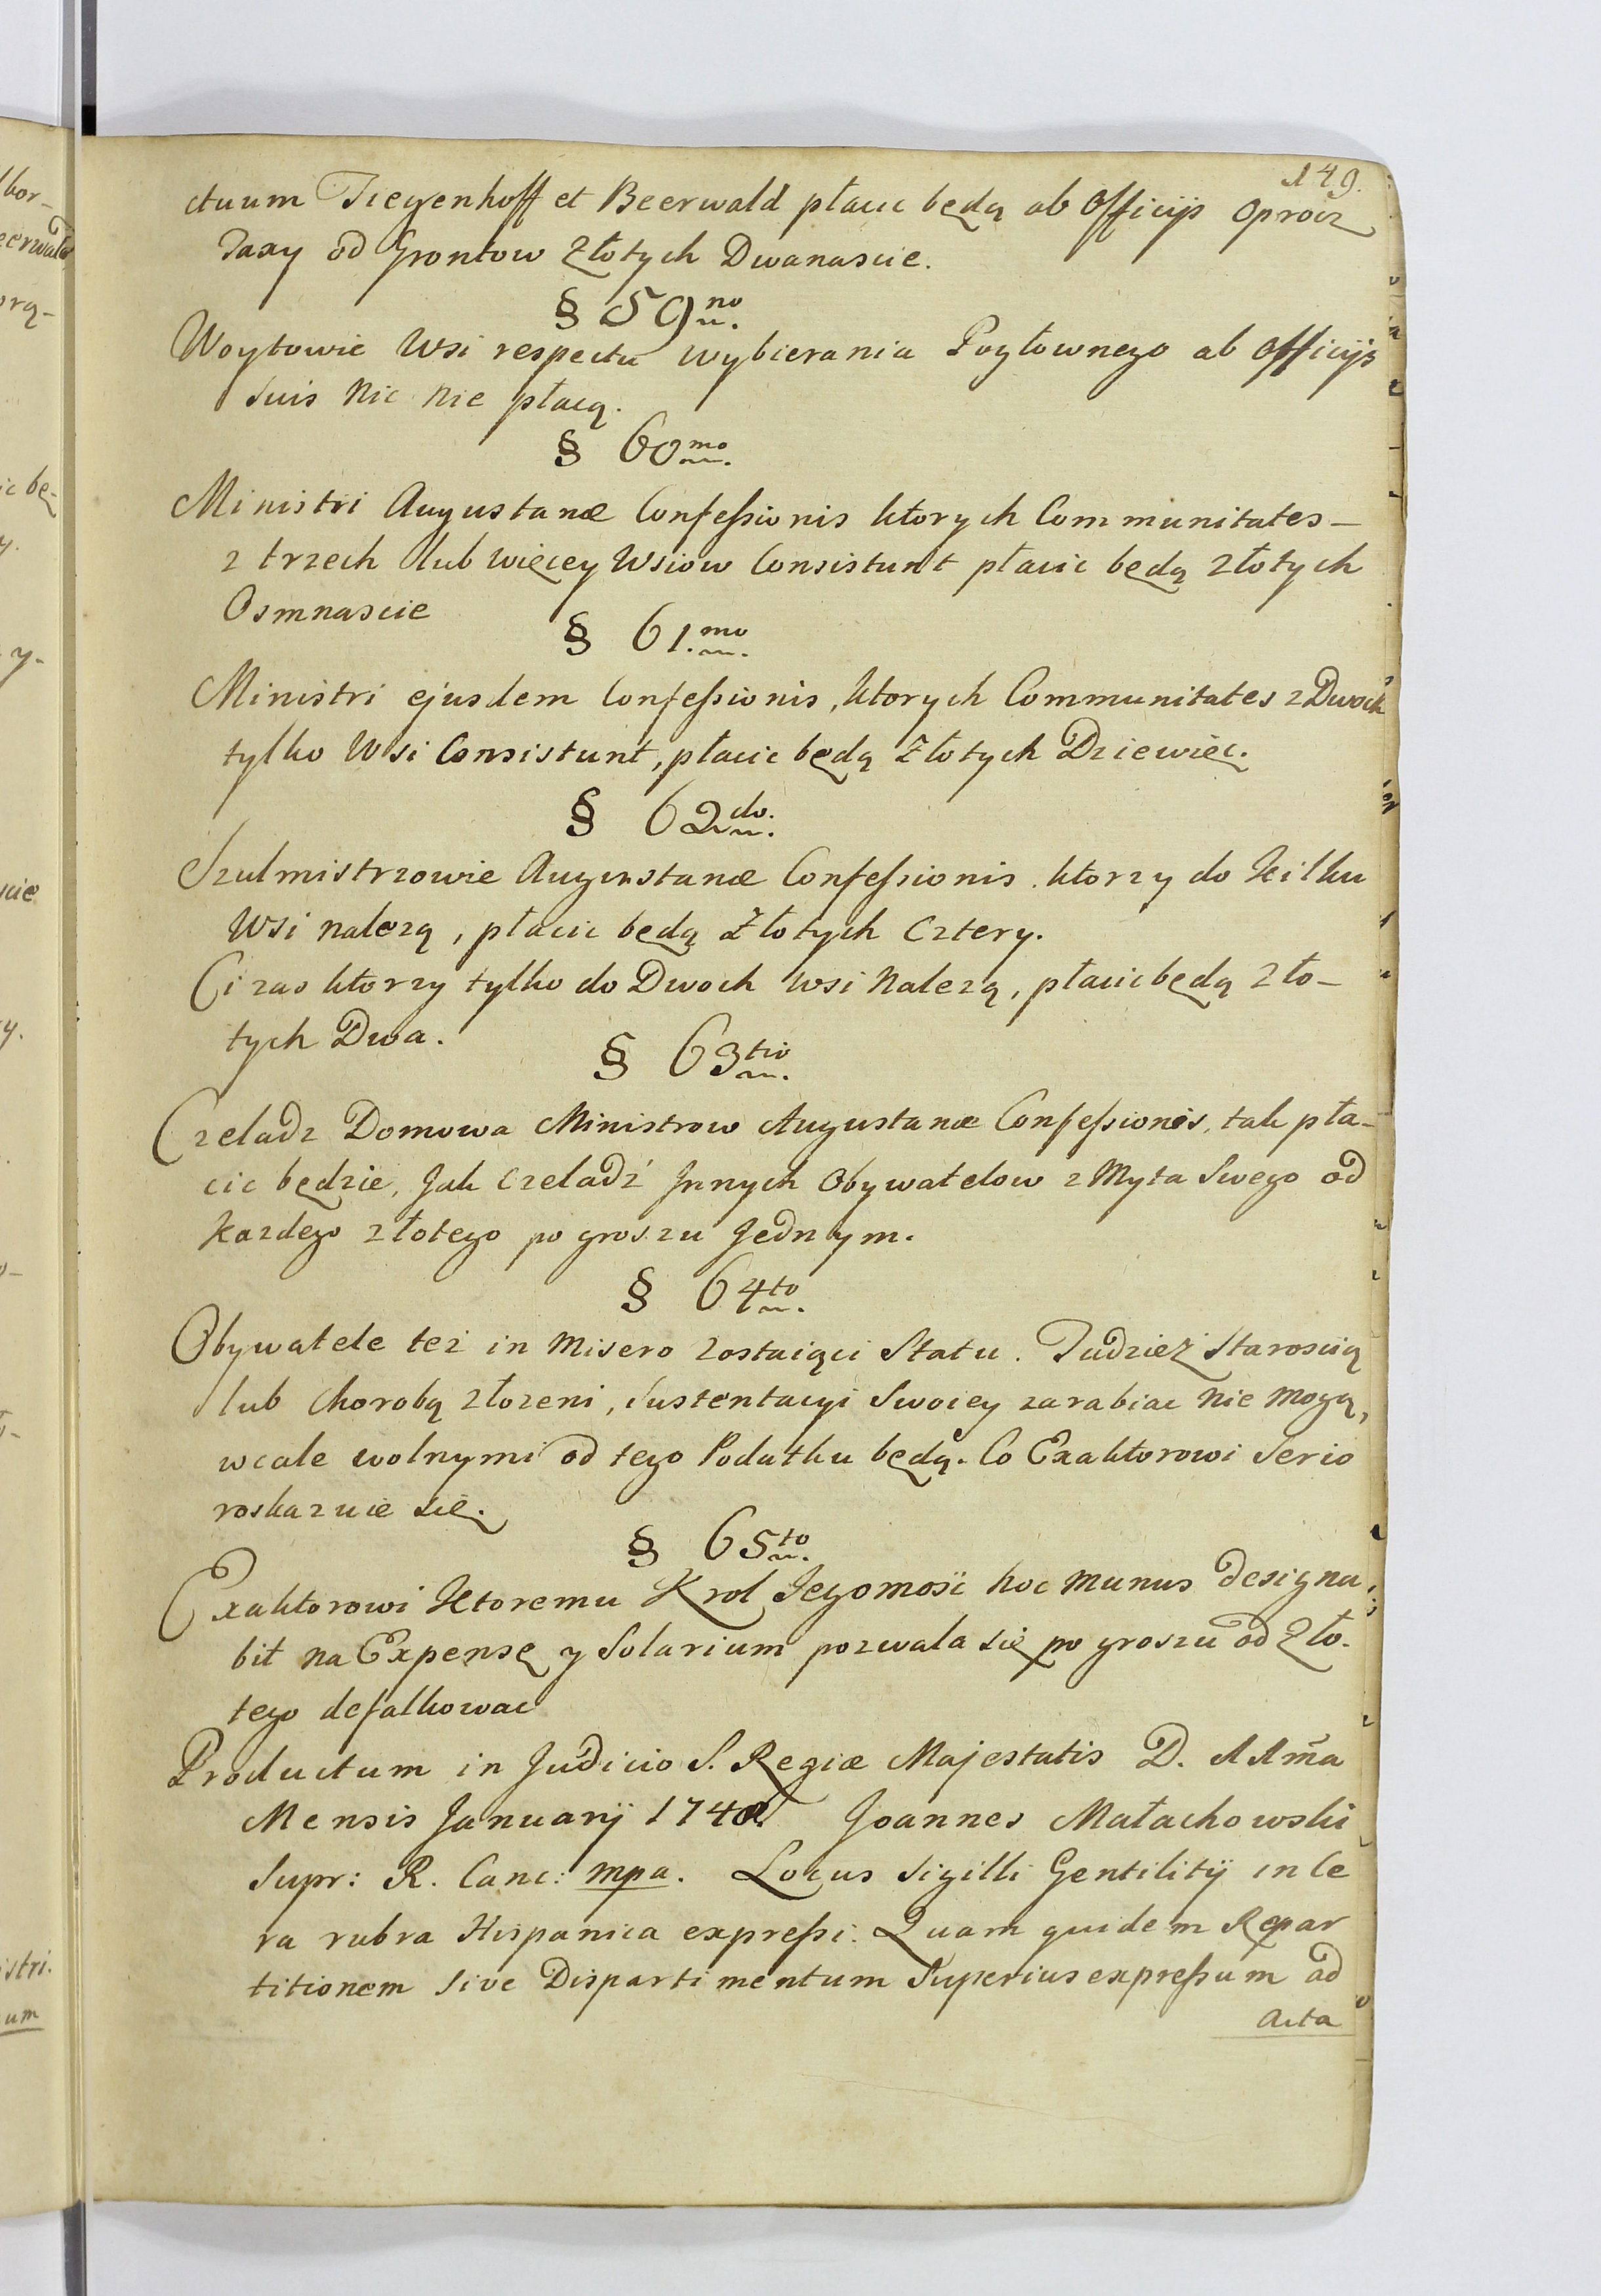 149.
ctuum Tiegenhoff et Beerwald płacic będą ab Officijs oprocz
Taxy od Grontow Złotych Dwanascie.
§ 59no.
Woytowie Wsi respectu wybierania Pogłownego ab Officijs
Suis nic nie płacą.
§ 60mo.
Ministri Augustanæ Confessionis ktorych Communitates
z trzech lub więcey Wsiow Consistunt płacic będą złotych
Osmnascie
§ 61.mo.
Ministri ejusdem Confessionis, ktorych Communitates z Dwoch
tylko Wsi Consistunt, płacic będą Złotych Dziewięc.
§ 62do.
Szulmistrzowie Augustanæ Confessionis ktorzy do kilku
Wsi nalezą, płacic będą Złotych Cztery.
Ci zas ktorzy tylko do Dwoch Wsi nalezą, płacic będą Zło-
tych Dwa.
§ 63tio.
Czeladz Domowa Ministrow Augustanæ Confessionis, tak pła-
cic będzie, Jak Czeladź Jnnych Obywatelow z Myta Swego od
Kazdego złotego po groszu Jednym.
§ 64to.
Obywatele też in Misero zostaiąci Statu. Tudzież Staroscią
lub chorobą złozeni, Sustentacyi Swoiey zarabiac nie mogą,
wcale wolnymi od tego Podatku będą. Co Exaktorowi Serio
roskazuie się.
§ 65to.
Exaktorowi Ktoremu Krol Jegomosć hoc munus designa
bit na Expensę y Solarium pozwala się po groszu od Zło-
tego defalkowac
Productum in Judicio S. Regiæ Majestatis D. 11ma
Mensis Januarij Joannes Małachowski
Supr: R. Canc: mpa. Locus Sigilli Gentilitij in Ce
ra rubra Hispanica expressi. Quam quidem Repar
titionem sive Dispartimentum Superius expressum ad
Acta